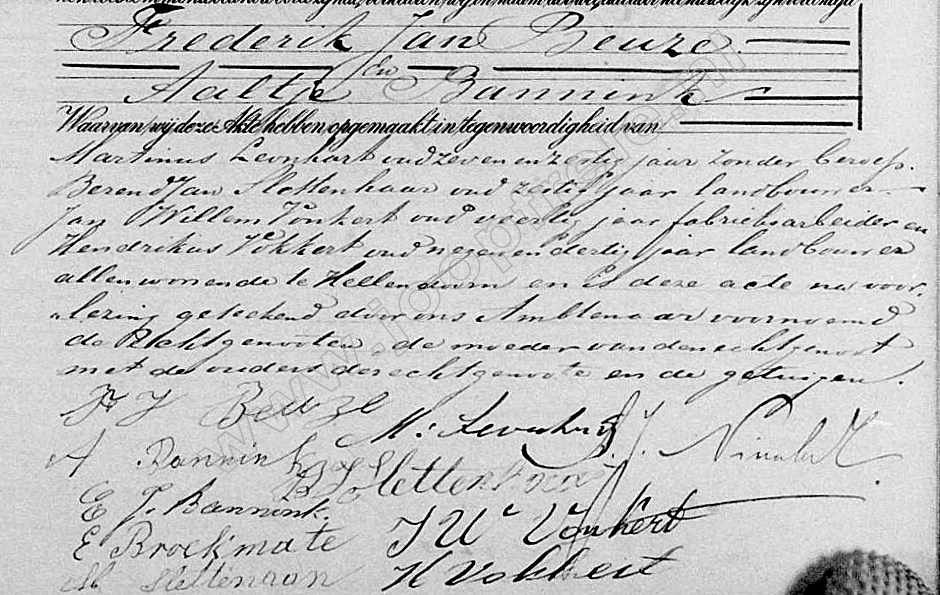 Frederik Jan Beuze
en
Aaltje Bannink
Waarvan wij deze Akte hebben opgemaakt in tegenwoordigheid van
Martinus Leonhart oud zeven en zestig jaar zonder beroep.
Berend Jan Slottenhaar oud zestig jaar landbouwer
Jan Willem Vonkert oud veertig jaar fabrieksarbeider en
Hendrikus Vokkert oud negen en dertig jaar landbouwer
allen wonende te Hellendoorn en is deze acte na voor-
lezing geteekend door ons Ambtenaar voornoemd
de Echtgenooten, de moeder van den echtgenoot
met de ouders der echtgenoote en de getuigen.
F J Beuze
M: J.
A Bannink
E J. Bannink
E Broekmate J W Vonkert
H Vokkert
www.jooptreid.nl